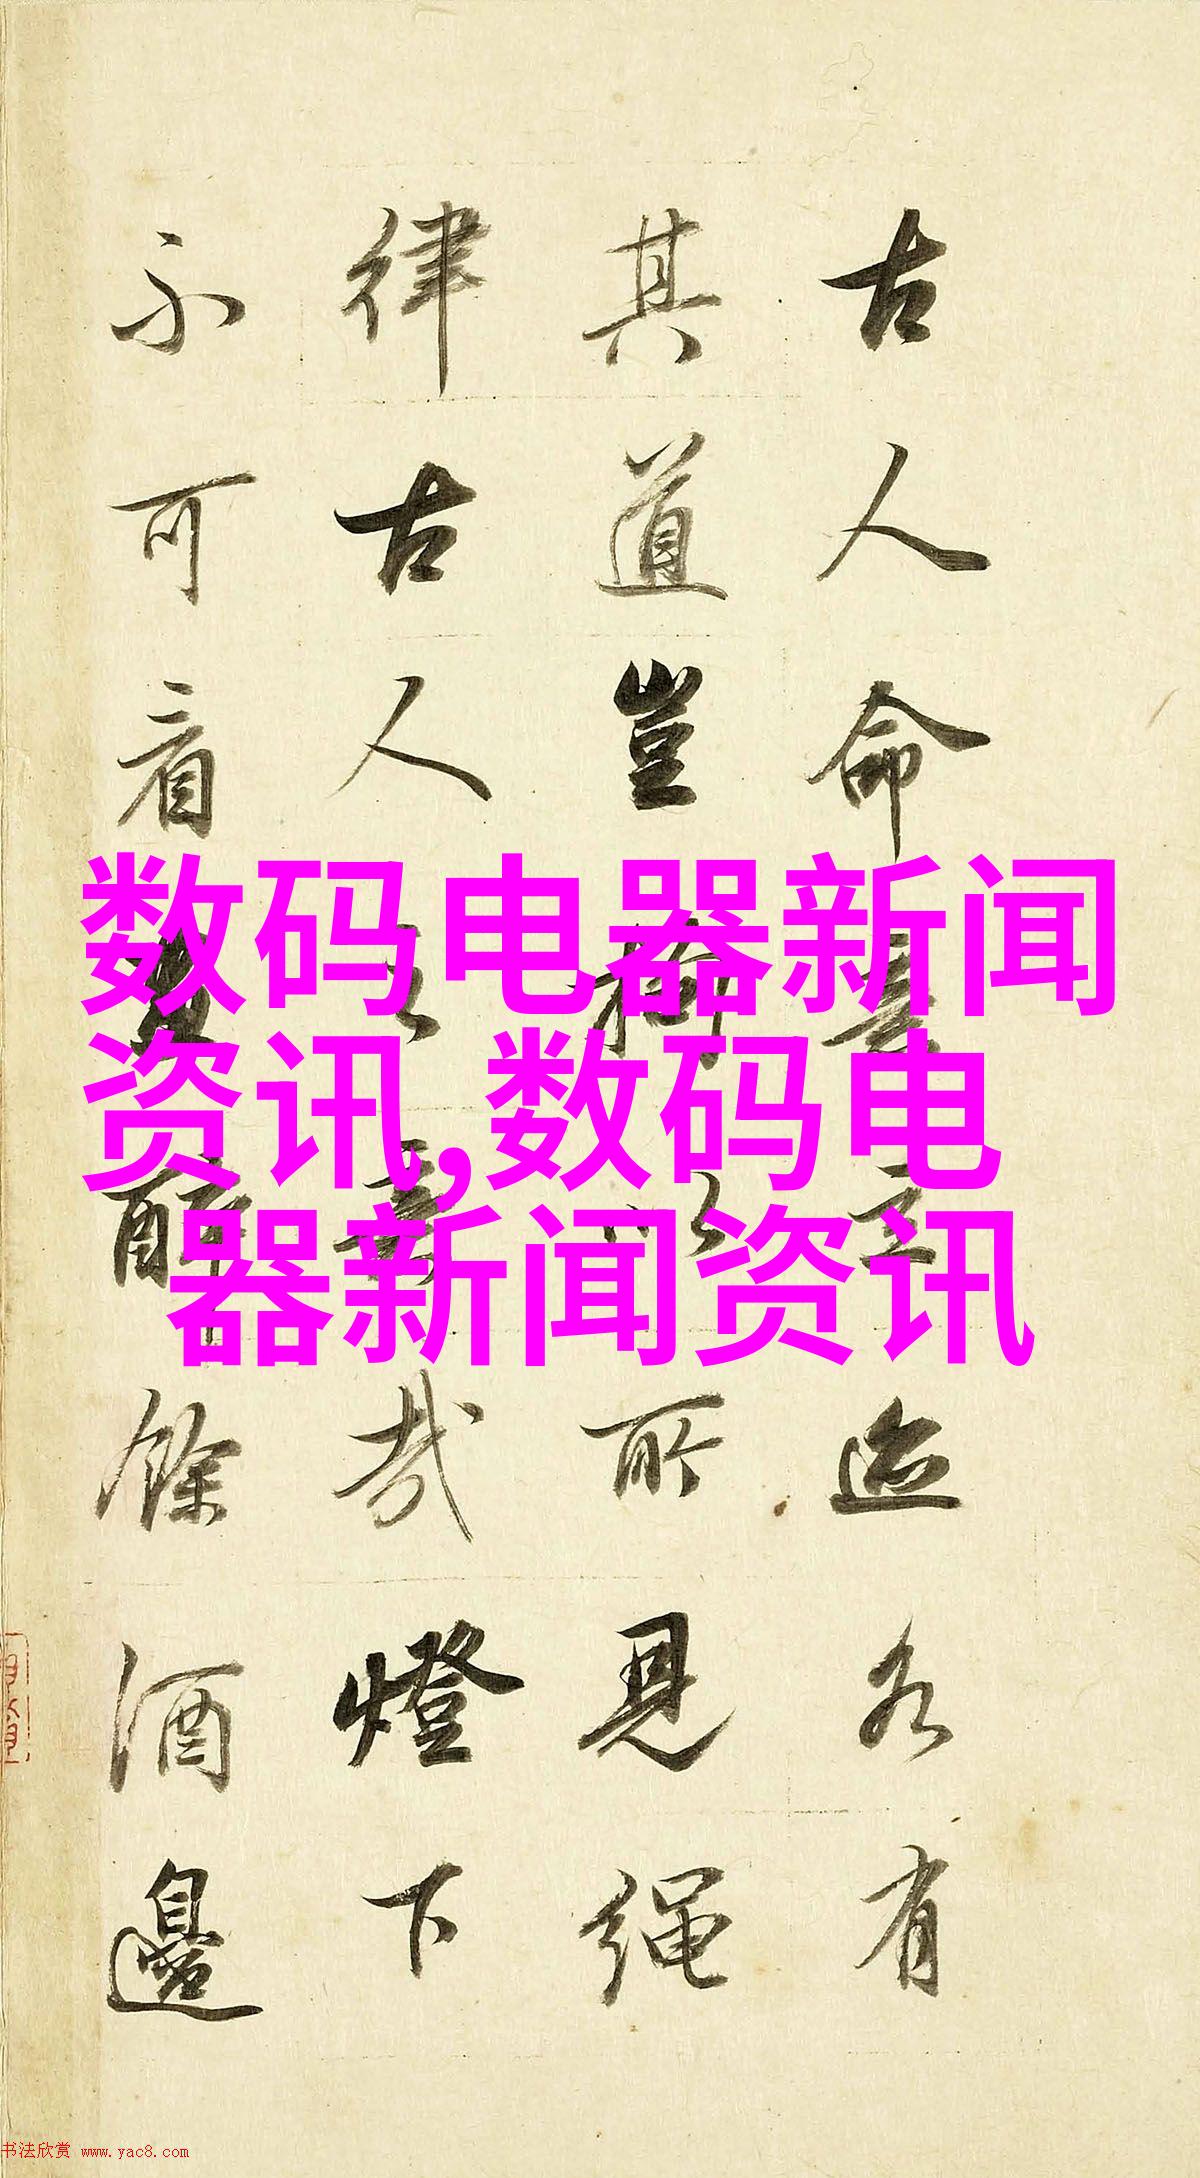 古人命意立迹各有
其道豈以所見繩
律古人之意哉燈下
不可看醉餘酒邊
数码电器新闻
资讯,数码电
器新闻资讯
书法欣赏 www.yac8.com